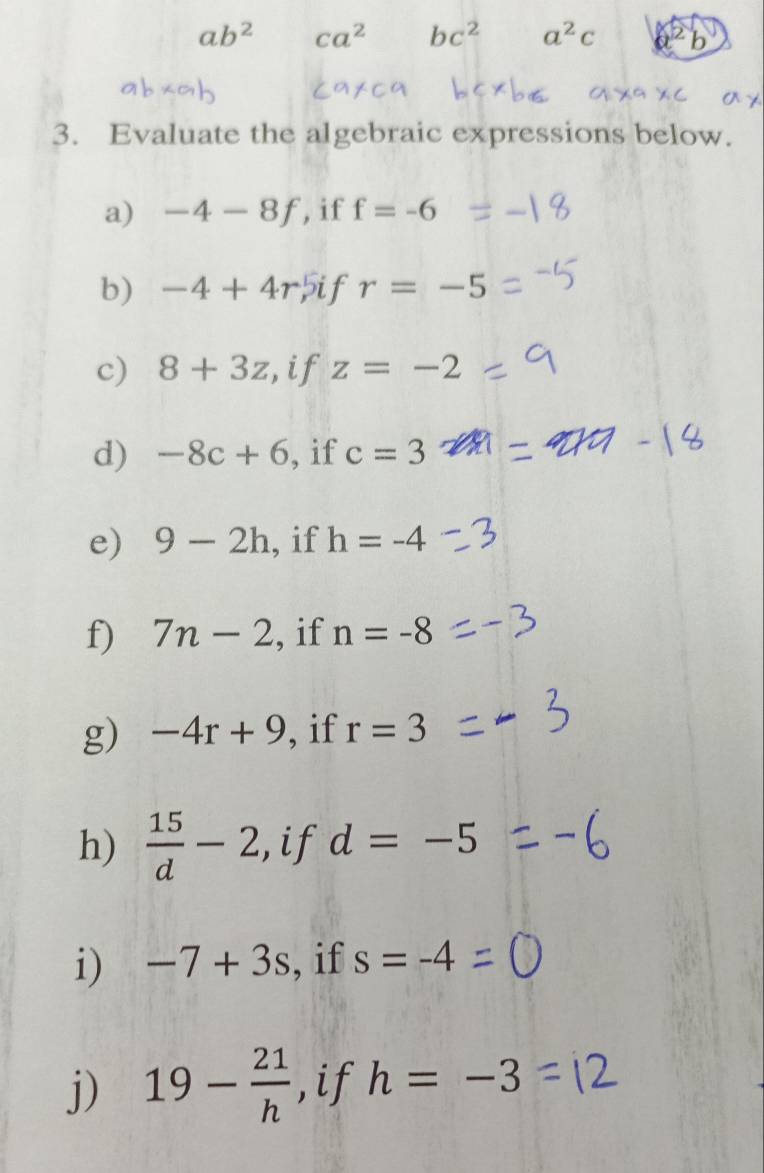 ab² ca² bc² a²c a²b
ab×ab ca×ca bc×bc a×a×c a×
3. Evaluate the algebraic expressions below.
a) −4 − 8f, if f = -6 = -18
b) −4 + 4r, 5 if r = −5 = -5
c) 8 + 3z, if z = −2 = 9
d) −8c + 6, if c = 3 = -18
e) 9 − 2h, if h = -4 = 3
f) 7n − 2, if n = -8 = -3
g) −4r + 9, if r = 3 = - 3
h) 15/d − 2, if d = −5 = -6
i) −7 + 3s, if s = -4 = 0
j) 19 − 21/h, if h = −3 = 12